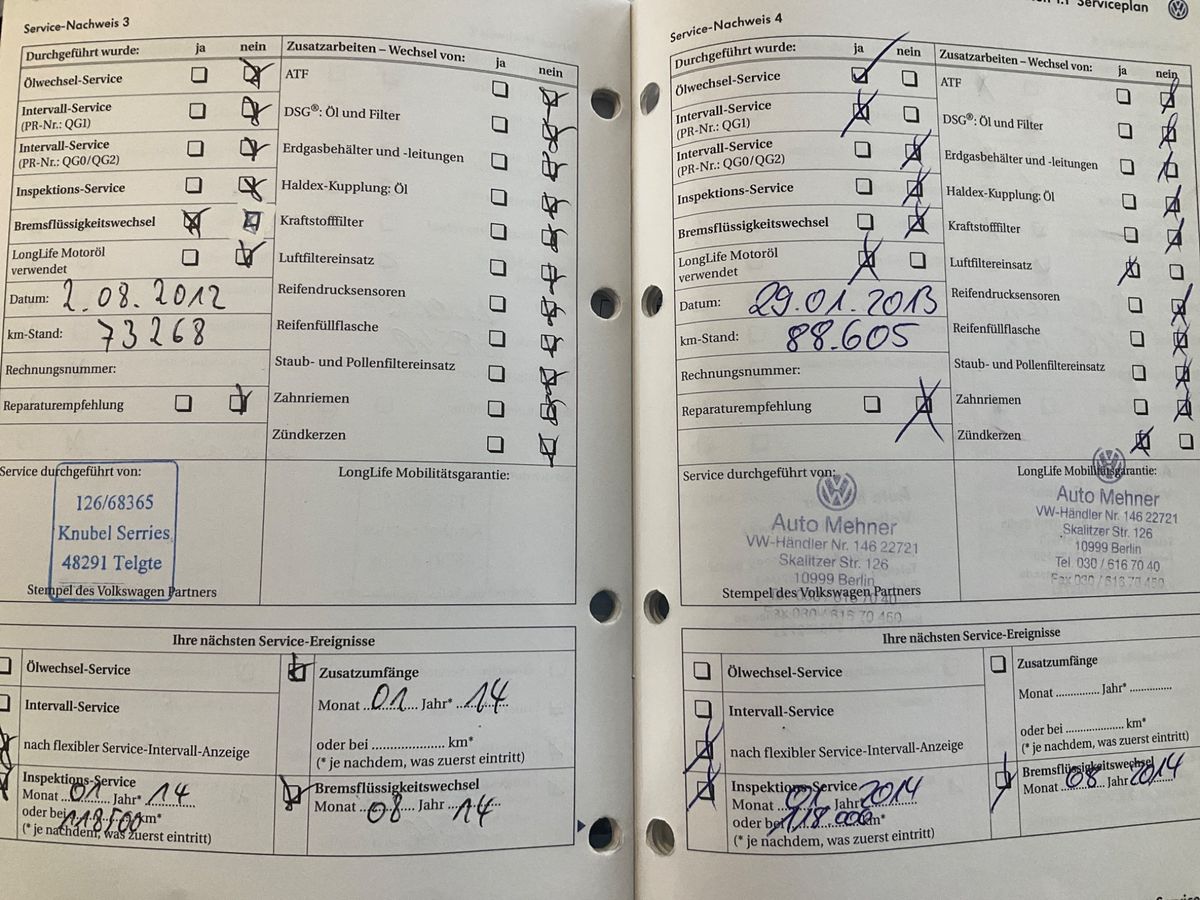 Service-Nachweis 3
Durchgeführt wurde: ja nein
Ölwechsel-Service
Intervall-Service
(PR-Nr.: QG1)
Intervall-Service
(PR-Nr.: QG0/QG2)
Inspektions-Service
Bremsflüssigkeitswechsel
LongLife Motoröl
verwendet
Datum: 2.08.2012
km-Stand: 73268
Rechnungsnummer:
Reparaturempfehlung
Zusatzarbeiten – Wechsel von: ja nein
ATF
DSG®: Öl und Filter
Erdgasbehälter und -leitungen
Haldex-Kupplung: Öl
Kraftstofffilter
Luftfiltereinsatz
Reifendrucksensoren
Reifenfüllflasche
Staub- und Pollenfiltereinsatz
Zahnriemen
Zündkerzen
Service durchgeführt von:
126/68365
Knubel Serries
48291 Telgte
Stempel des Volkswagen Partners
LongLife Mobilitätsgarantie:
Ihre nächsten Service-Ereignisse
Ölwechsel-Service
Intervall-Service
nach flexibler Service-Intervall-Anzeige
Inspektions-Service
Monat 01 Jahr* 14
oder bei 118500 km*
(* je nachdem, was zuerst eintritt)
Zusatzumfänge
Monat 01 Jahr* 14
oder bei .................... km*
(* je nachdem, was zuerst eintritt)
Bremsflüssigkeitswechsel
Monat 08 Jahr 14
Serviceplan
Service-Nachweis 4
Durchgeführt wurde: ja nein
Ölwechsel-Service
Intervall-Service
(PR-Nr.: QG1)
Intervall-Service
(PR-Nr.: QG0/QG2)
Inspektions-Service
Bremsflüssigkeitswechsel
LongLife Motoröl
verwendet
Datum: 29.01.2013
km-Stand: 88.605
Rechnungsnummer:
Reparaturempfehlung
Zusatzarbeiten – Wechsel von: ja nein
ATF
DSG®: Öl und Filter
Erdgasbehälter und -leitungen
Haldex-Kupplung: Öl
Kraftstofffilter
Luftfiltereinsatz
Reifendrucksensoren
Reifenfüllflasche
Staub- und Pollenfiltereinsatz
Zahnriemen
Zündkerzen
Service durchgeführt von:
Auto Mehner
VW-Händler Nr. 146 22721
Skalitzer Str. 126
10999 Berlin
Stempel des Volkswagen Partners
Fax 030 / 616 70 460
LongLife Mobilitätsgarantie:
Auto Mehner
VW-Händler Nr. 146 22721
Skalitzer Str. 126
10999 Berlin
Tel. 030 / 616 70 40
Fax 030 / 616 70 460
Ihre nächsten Service-Ereignisse
Ölwechsel-Service
Intervall-Service
nach flexibler Service-Intervall-Anzeige
Inspektions-Service
Monat 01 Jahr 2014
oder bei 118.000 km*
(* je nachdem, was zuerst eintritt)
Zusatzumfänge
Monat ............ Jahr* ............
oder bei .................... km*
(* je nachdem, was zuerst eintritt)
Bremsflüssigkeitswechsel
Monat 08 Jahr 2014